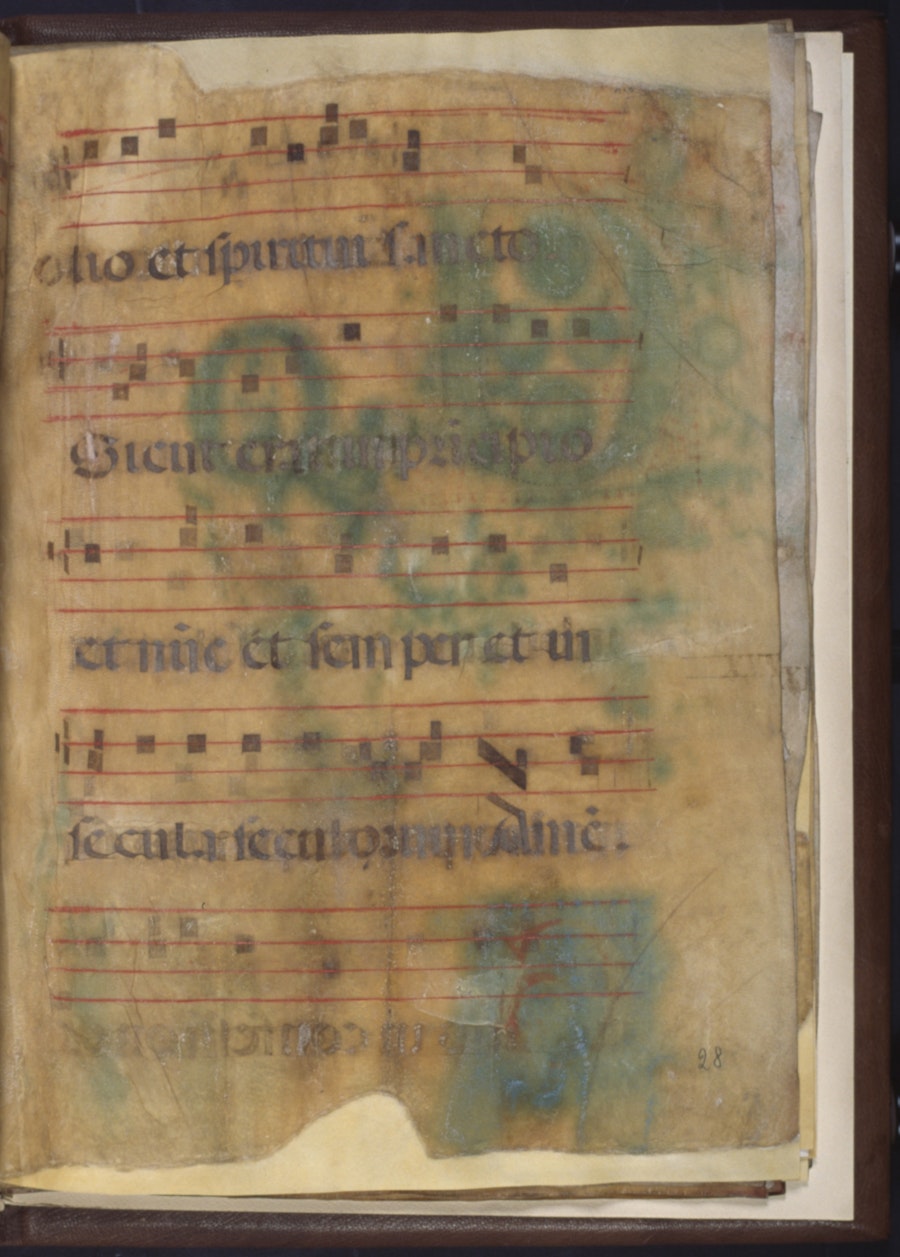 olio et spiritui sancto
Sicut erat in principio
et nūc et sem per et in
secula seculoꝝ Amē.
28